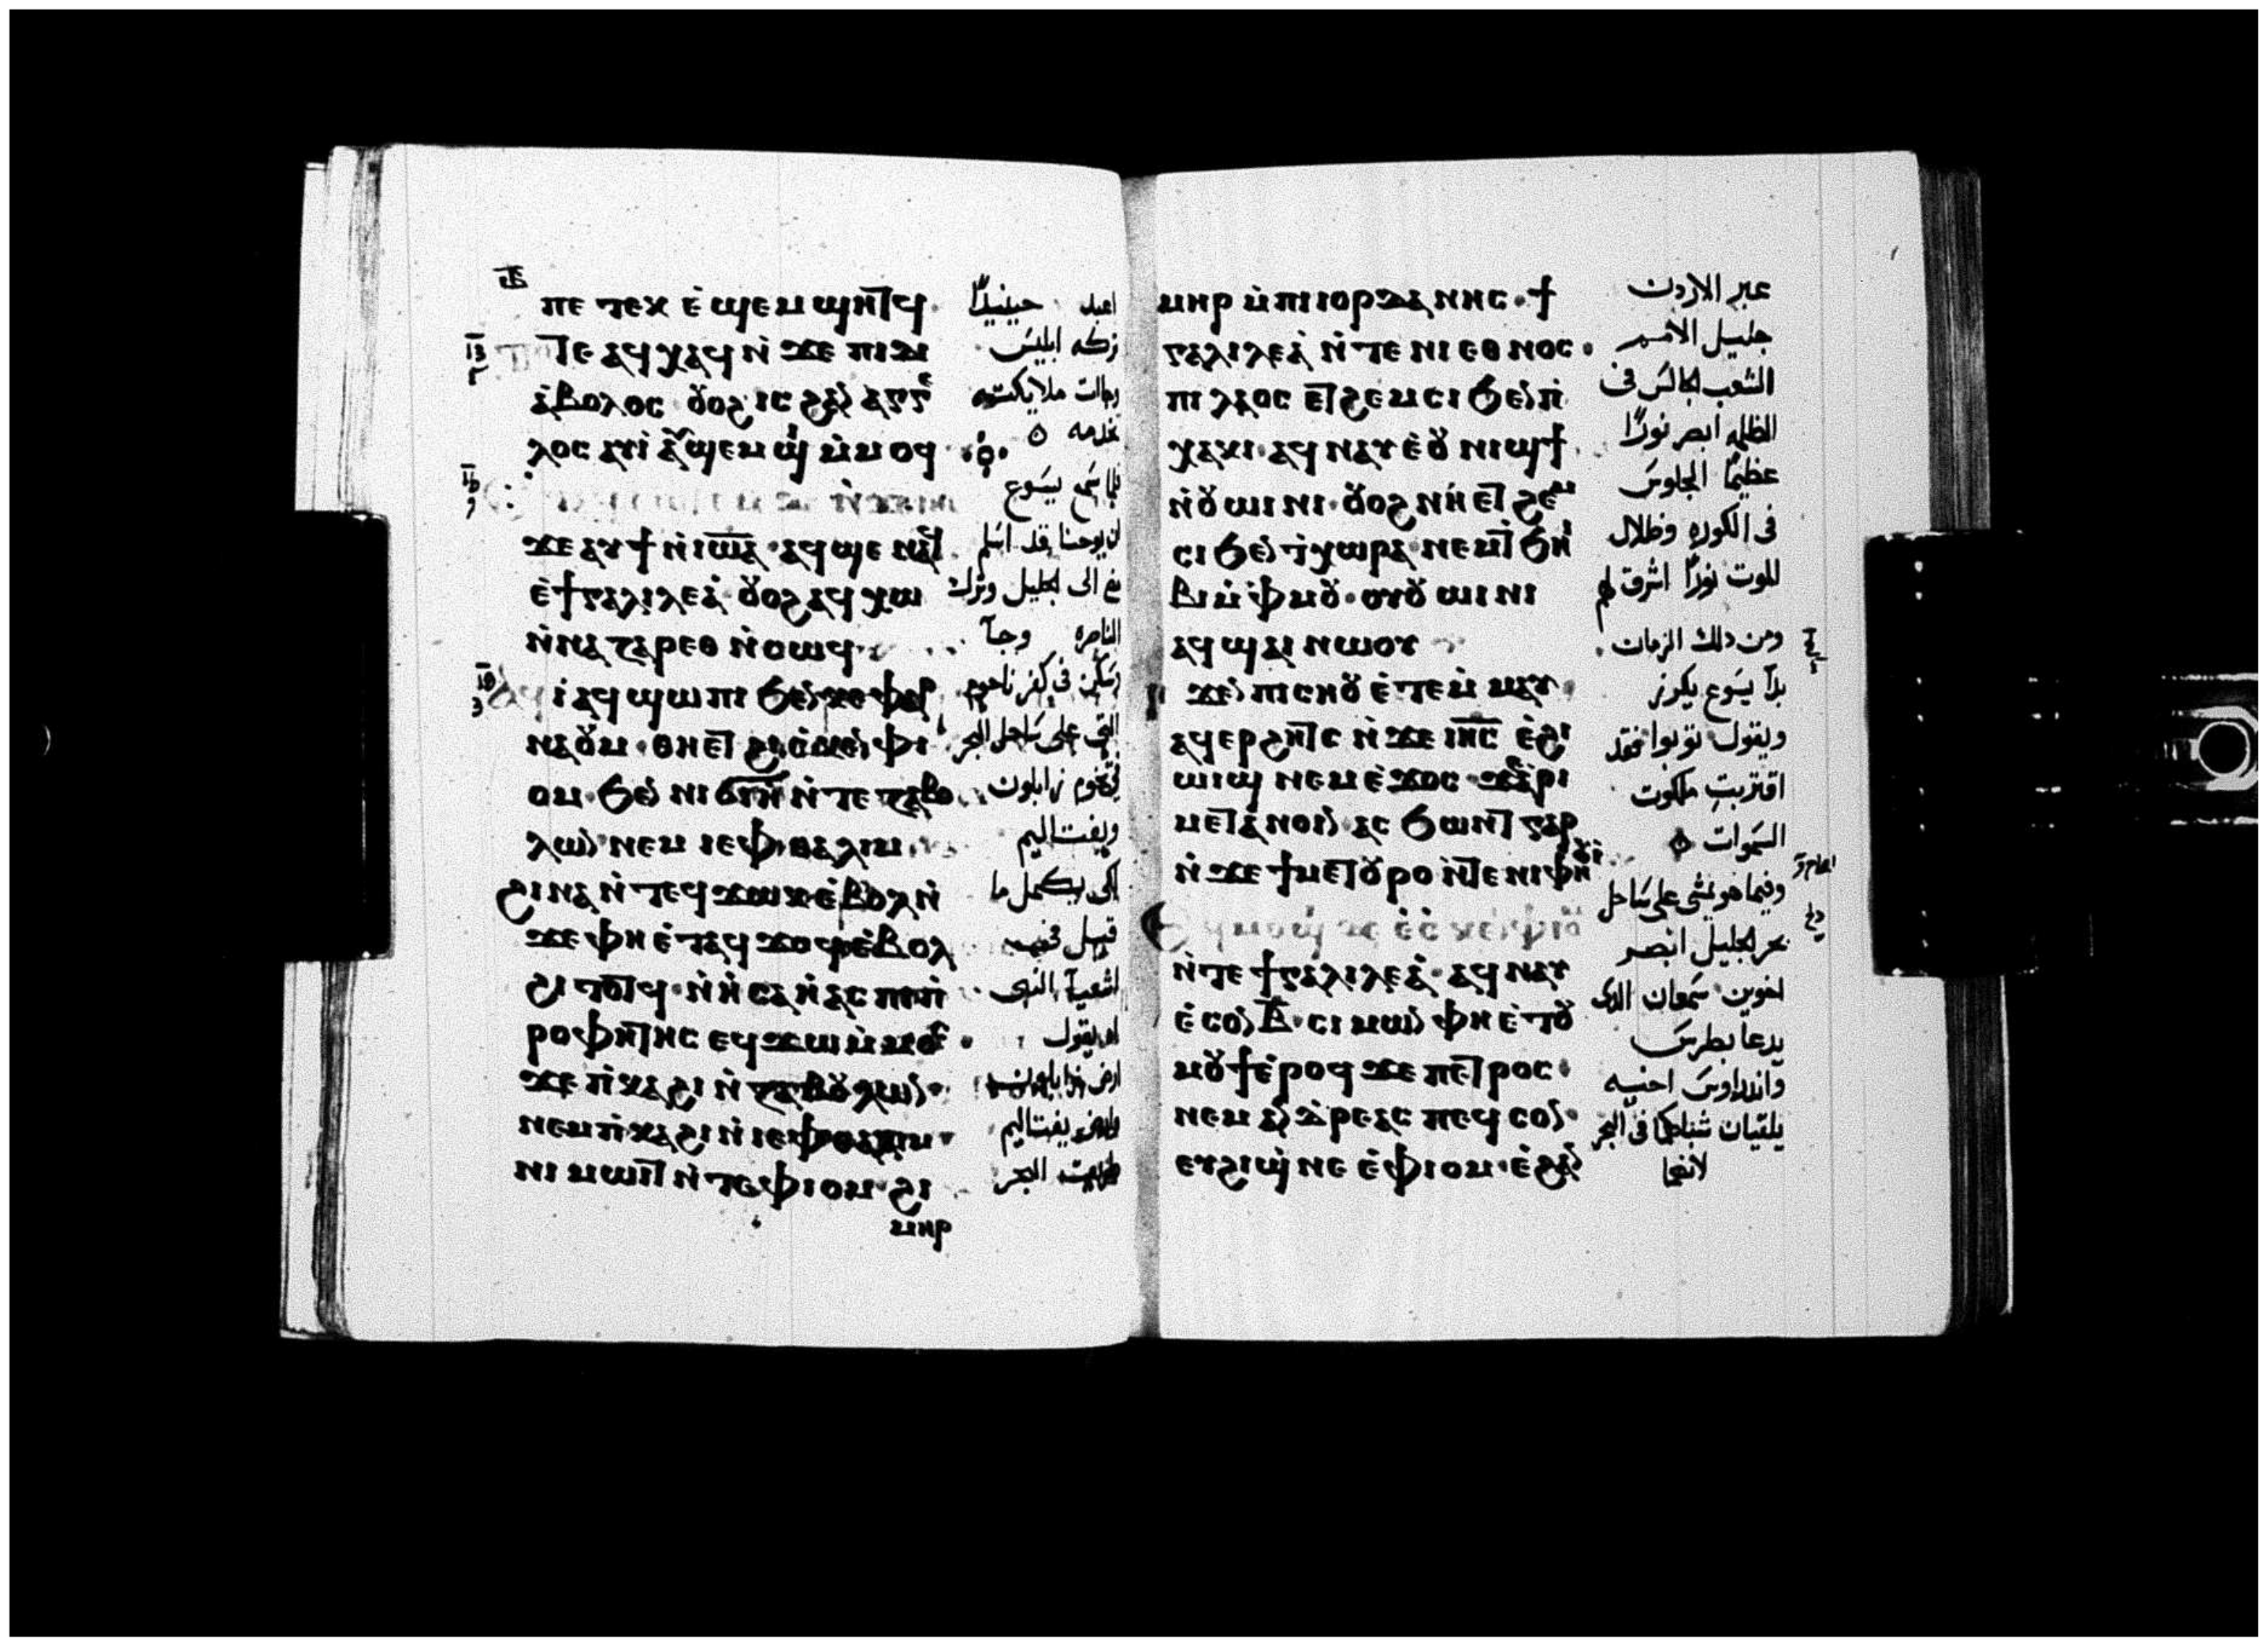 ⲓⲃ
ⲡⲉⲧⲉⲕ ⲉ̀ϣⲉⲙϣⲏⲧϥ
ⲧⲉ ⲁϥⲭⲁϥ ⲛ̀ϫⲉ ⲡⲓⲇⲓ
ⲁ̀ⲃⲟⲗⲟⲥ ⲟⲩⲟϩ ⲓⲥ ϩⲁⲛ ⲁⲅⲅⲉ
ⲗⲟⲥ ⲁⲩⲓ̀ ⲁⲩϣⲉⲙϣⲓ ⲙ̀ⲙⲟϥ
ϫⲉ ⲁⲩϯ ⲛ̀ⲓⲱⲁ ⲁϥϣⲉ ⲛⲁϥ
ⲉ̀ϯⲅⲁⲗⲓⲗⲉⲁ̀ ⲟⲩⲟϩ ⲁϥⲭⲱ
ⲛ̀ⲛⲁⲍⲁⲣⲉⲑ ⲛ̀ⲥⲱϥ
ⲓ̀ ⲁϥϣⲱⲡⲓ ϧⲉⲛ ⲕⲉⲫⲁⲣ
ⲛⲁⲟⲩⲙ ⲑⲏⲉⲧ ϩⲓⲥⲕⲉⲛ ⲫⲓ
ⲟⲙ ϧⲉⲛ ⲛⲓϭⲓⲏ ⲛ̀ⲧⲉ ⲍⲁⲃⲟ
ⲗⲱⲛ ⲛⲉⲙ ⲓⲉⲫⲑⲁⲗⲓⲙ
ϩⲓⲛⲁ ⲛ̀ⲧⲉϥϫⲱⲕ ⲉ̀ⲃⲟⲗ ⲛ̀
ϫⲉ ⲫⲏ ⲉ̀ⲧⲁϥϫⲟϥ ⲉ̀ⲃⲟⲗ
ϩⲓⲧⲟⲧϥ ⲛ̀ⲏ̀ⲥⲁⲏ̀ⲁⲥ ⲡⲓⲡ̀
ⲣⲟⲫⲏⲧⲏⲥ ⲉϥϫⲱ ⲙ̀ⲙⲟⲥ
ϫⲉ ⲡ̀ⲕⲁϩⲓ ⲛ̀ⲍⲁⲃⲟⲩⲗⲱⲛ
ⲛⲉⲙ ⲡ̀ⲕⲁϩⲓ ⲛ̀ⲓⲉⲫⲑⲁⲗⲓⲙ
ⲛⲓⲙⲱⲓⲧ ⲛ̀ⲧⲉ ⲫⲓⲟⲙ ϩⲓ
ⲙⲏⲣ
اعبد حينيداً
تركه ابليس
وجات ملايكته
تخدمه
فلما سمع يسوع
ان يوحنا قد اسلم
مضى الى الجليل وترك
الناصره وجآ
وسكن فى كفر ناحوم
التى على ساحل البحر
فى تخوم زابلون
ويفتاليم
لكى يكمل ما
قيل من جهة
اشعيآ النبى
اد يقول
ارض زابلون
وارض يفتاليم
طريق البحر
ⲙⲏⲣ ⲙ̀ⲡⲓⲓⲟⲣⲇⲁⲛⲏⲥ ϯ
ⲅⲁⲗⲓⲗⲉⲁ̀ ⲛ̀ⲧⲉ ⲛⲓⲉⲑⲛⲟⲥ
ⲡⲓⲗⲁⲟⲥ ⲉⲧϩⲉⲙⲥⲓ ϧⲉⲛ ⲡ̀
ⲭⲁⲕⲓ ⲁϥⲛⲁⲩ ⲉ̀ⲟⲩⲛⲓϣϯ
ⲛ̀ⲟⲩⲱⲓⲛⲓ ⲟⲩⲟϩ ⲛⲏ ⲉⲧϩⲉⲙ
ⲥⲓ ϧⲉⲛ ⲧ̀ⲭⲱⲣⲁ ⲛⲉⲙ ⲧ̀ϧⲏⲓ
ⲃⲓ ⲙ̀ⲫⲙⲟⲩ ⲟⲩⲟⲩⲱⲓⲛⲓ
ⲁϥϣⲁⲓ ⲛⲱⲟⲩ
ϫⲉⲛ ⲡⲓⲥⲏⲟⲩ ⲉ̀ⲧⲉⲙ̀ⲙⲁⲩ
ⲁϥⲉⲣϩⲏⲧⲥ ⲛ̀ϫⲉ ⲓⲏⲥ ⲉ̀ϩⲓ
ⲱⲓϣ ⲛⲉⲙ ⲉ̀ϫⲟⲥ ϫⲉ ⲁⲣⲓ
ⲙⲉⲧⲁⲛⲟⲓⲛ ⲁⲥϧⲱⲛⲧ ⲅⲁⲣ
ⲛ̀ϫⲉ ϯⲙⲉⲧⲟⲩⲣⲟ ⲛ̀ⲧⲉ ⲛⲓⲫⲏⲟⲩⲓ̀
ⲉϥⲙⲟϣⲓ ⲇⲉ ⲉ̀ⲥⲕⲉⲛ ⲫⲓⲟⲙ
ⲛ̀ⲧⲉ ϯⲅⲁⲗⲓⲗⲉⲁ̀ ⲁϥⲛⲁⲩ
ⲉ̀ⲥⲟⲛ ⲃ ⲥⲓⲙⲱⲛ ⲫⲏ ⲉ̀ⲧⲟⲩ
ⲙⲟⲩϯ ⲉ̀ⲣⲟϥ ϫⲉ ⲡⲉⲧⲣⲟⲥ
ⲛⲉⲙ ⲁⲛⲇⲣⲉⲁⲥ ⲡⲉϥⲥⲟⲛ
ⲉⲩϩⲓϣⲛⲉ ⲉ̀ⲫⲓⲟⲙ ⲉ̀ϩⲁⲛ
عبر الاردن
جليل الامم
الشعب الجالس فى
الظلمه ابصر نورًا
عظيمًا الجلوس
فى الكوره وظلال
الموت نورًا اشرق لهم
ومن دلك الزمان
بدآ يسوع يكرز
ويقول توبوا فقد
اقتربت ملكوت
السموات
وفيما هو يمشى على ساحل
بحر الجليل ابصر
اخوين سمعان الدى
يدعا بطرس
واندراوس اخيه
يلقيان شباكهما فى البحر
لانهما